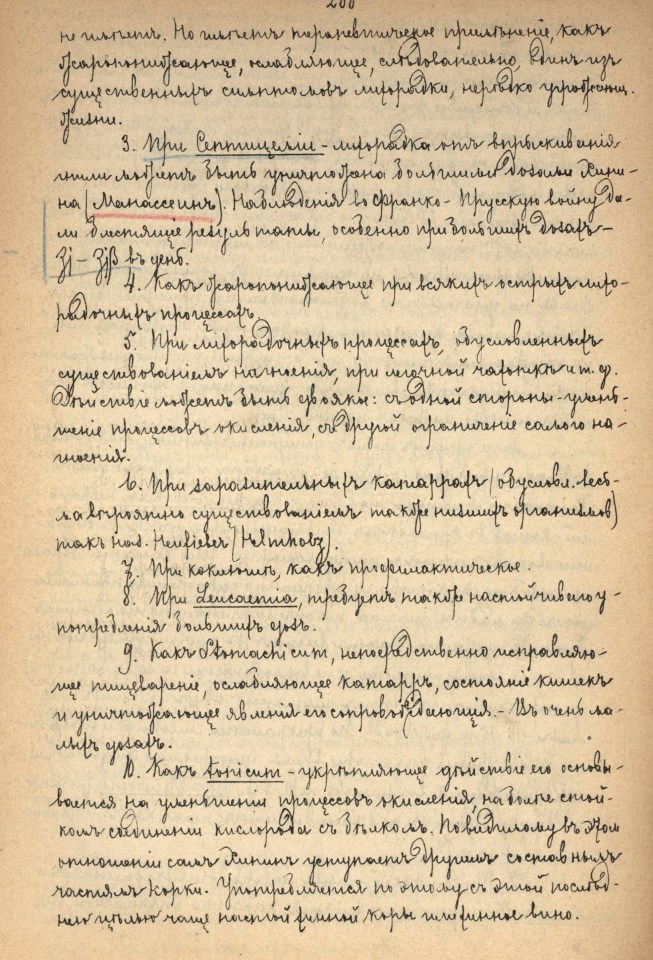 200
не имѣетъ. Но имѣетъ терапевтическое примѣненіе, какъ
жаропонижающее, ослабляющее, слѣдовательно, одинъ изъ
существенныхъ симптомовъ лихорадки, нерѣдко угрожающ.
жизни.
3. При Септицеміи - лихорадка отъ впрыскиванія
гнили можетъ быть уничтожена большими дозами Хини-
на (Манассеинъ). Наблюденія во Франко-Прусскую войну да-
ли блестящіе результаты, особенно при большихъ дозахъ -
ʒj - ʒjβ въ день.
4. Какъ жаропонижающее при всякихъ острыхъ лихо-
радочныхъ процессахъ.
5. При лихорадочныхъ процессахъ, обусловленныхъ
существованіемъ нагноенія, при легочной чахоткѣ и т. д.
Дѣйствіе можетъ быть двоякое: съ одной стороны - умень-
шеніе процессовъ окисленія, съ другой ограниченіе самого на-
гноенія.
6. При заразительныхъ катаррахъ (обусловл. весь-
ма вѣроятно существованіемъ также низшихъ организмовъ)
такъ наз. Heufieber (Helmholz).
7. При коклюшѣ, какъ профилактическое.
8. При Leucaemia, требуетъ также настойчиваго у-
потребленія большихъ дозъ.
9. Какъ Stomachicum, непосредственно исправляю-
щее пищевареніе, ослабляющее катарръ, состояніе кишекъ
и уничтожающее явленія его сопровождающія. - Въ очень ма-
лыхъ дозахъ.
10. Какъ tonicum - укрѣпляющее дѣйствіе его основы-
вается на уменьшеніи процессовъ окисленія, на болѣе стой-
комъ соединеніи кислорода съ бѣлкомъ. Повидимому въ этом
отношеніи самъ Хининъ уступаетъ другимъ составнымъ
частямъ корки. Употребляется по этому съ этой послѣд-
нею цѣлью чаще настой хинной коры или хинное вино.